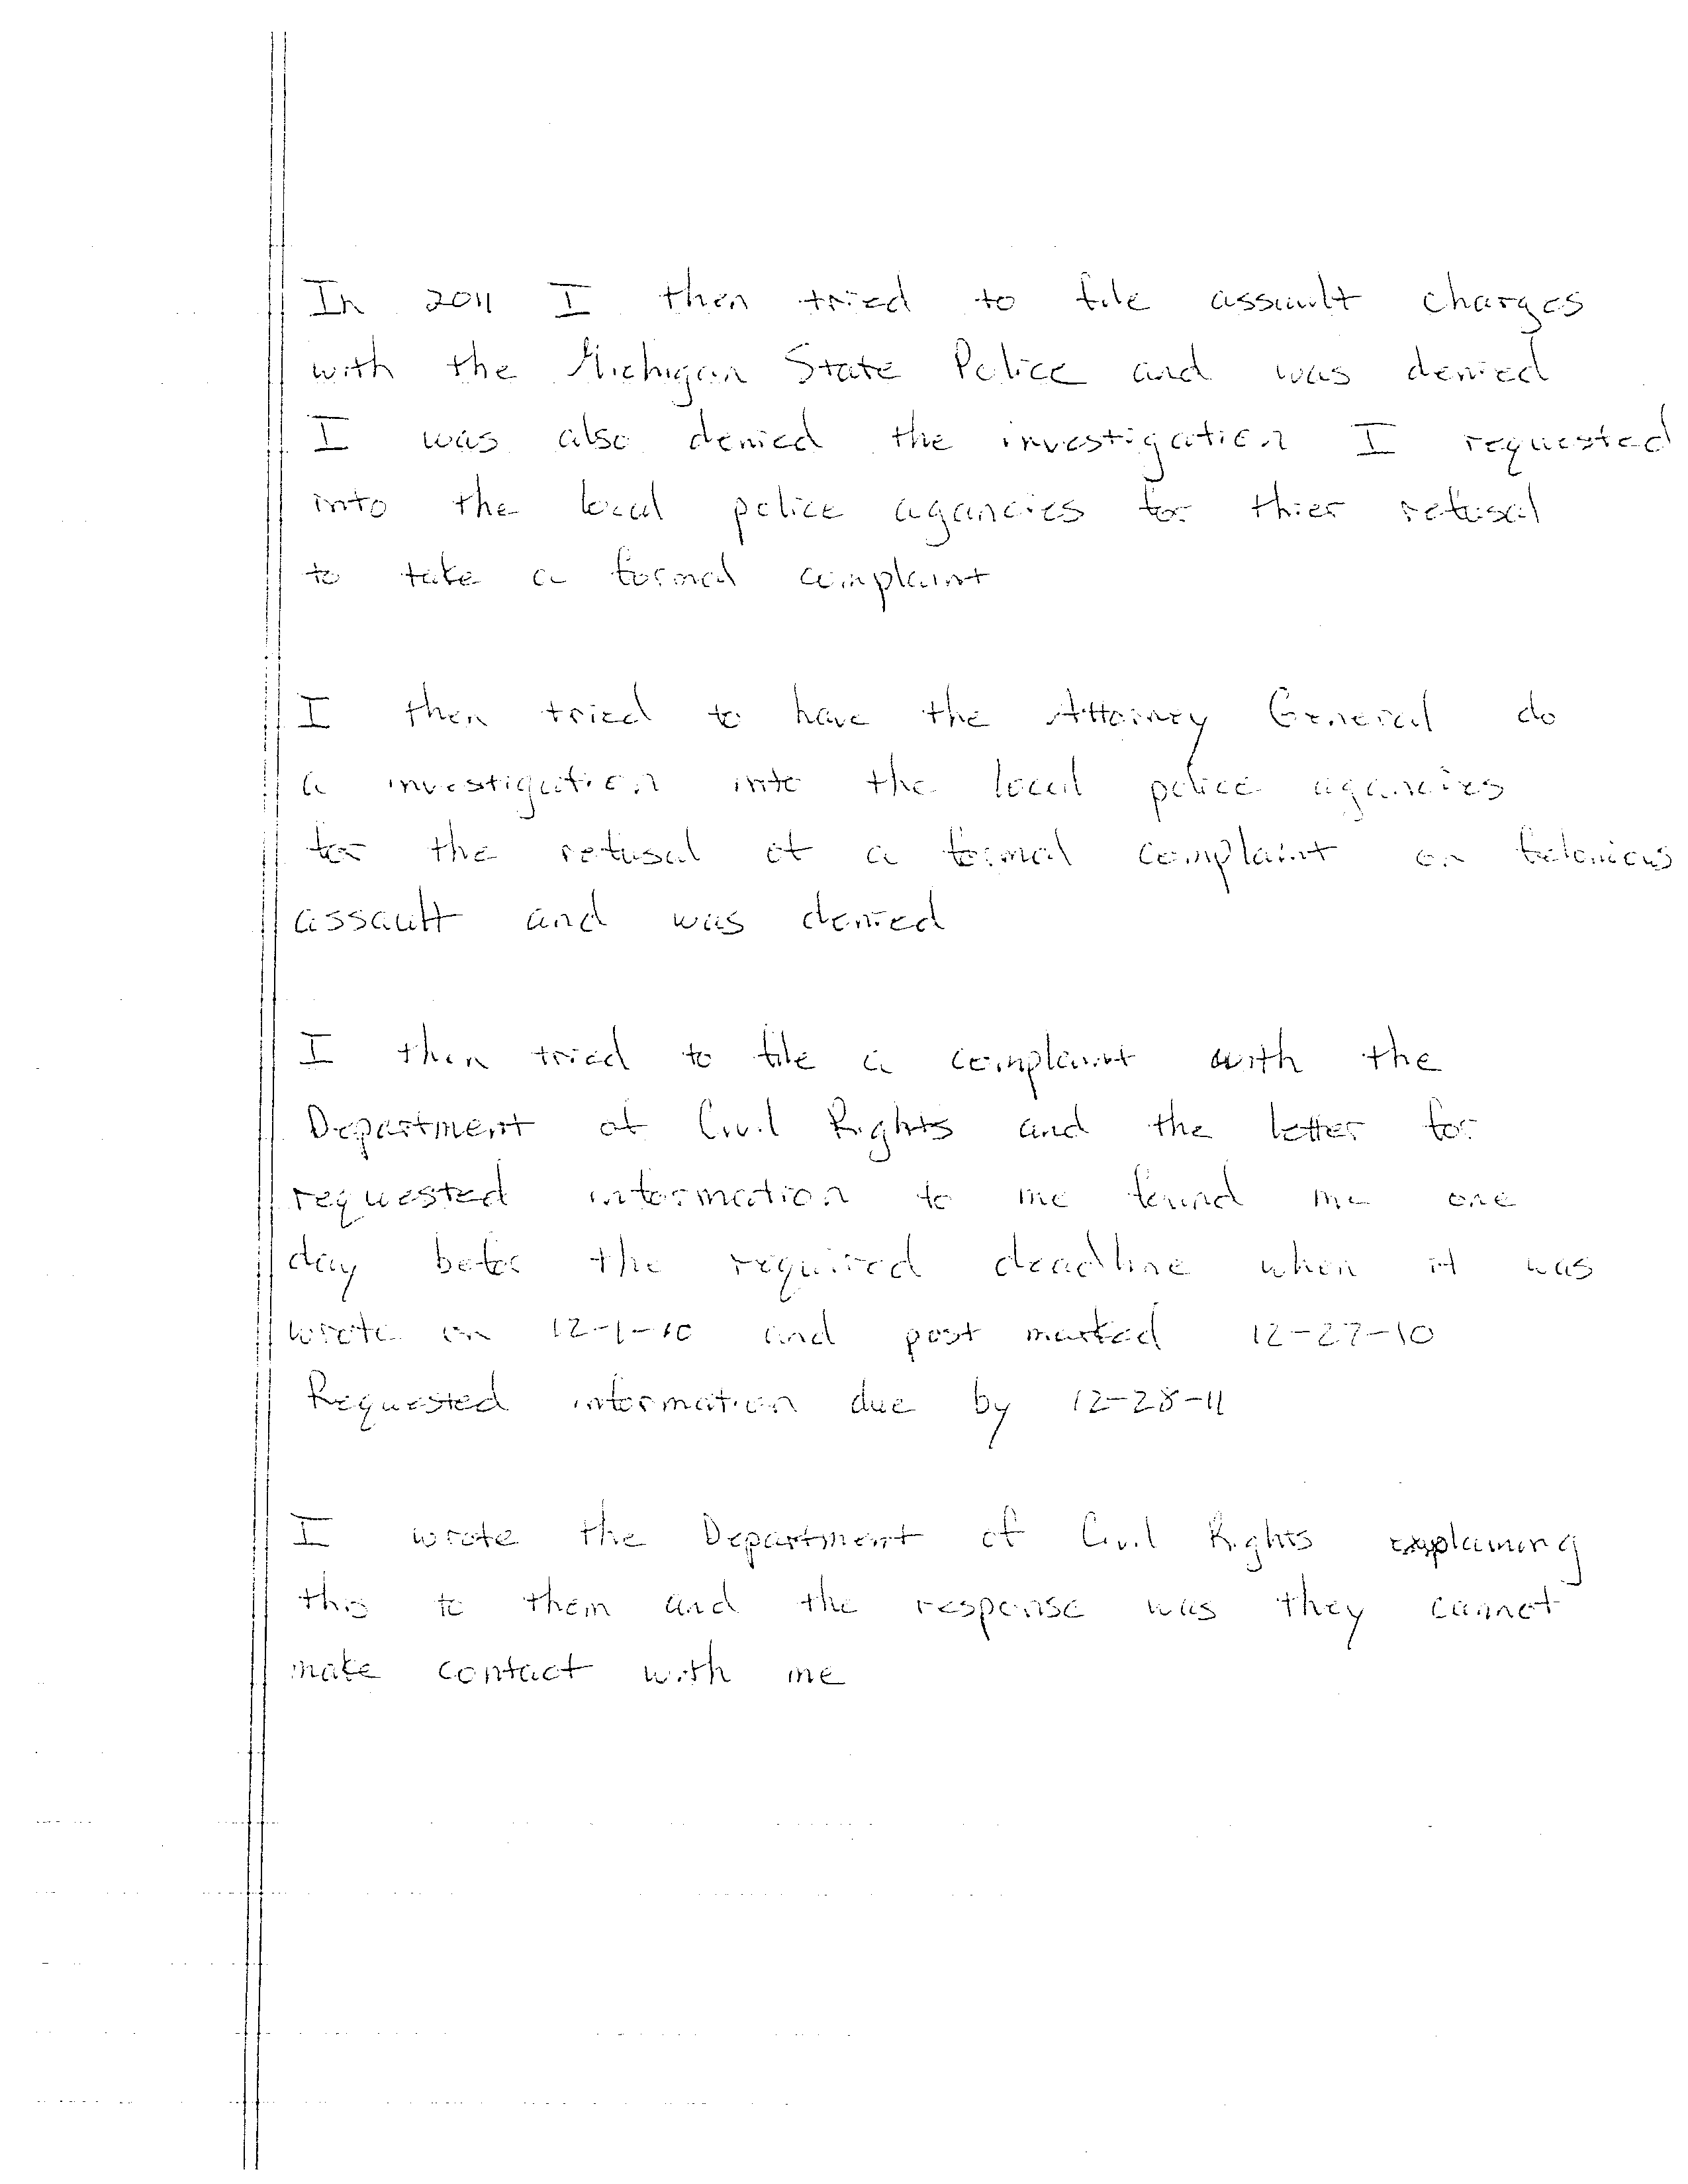 In 2011 I then tried to file assault charges
with the Michigan State Police and was denied
I was also denied the investigation I requested
into the local police agancies for thier refusal
to take a formal complaint
I then tried to have the Attorney General do
a investigation into the local police agancies
for the refusal of a formal complaint on felonious
assault and was denied
I then tried to file a complaint with the
Department of Civil Rights and the letter for
requested information to me found me one
day befor the required deadline when it was
wrote on 12-1-10 and post marked 12-27-10
Requested information due by 12-28-11
I wrote the Department of Civil Rights explaining
this to them and the response was they cannot
make contact with me